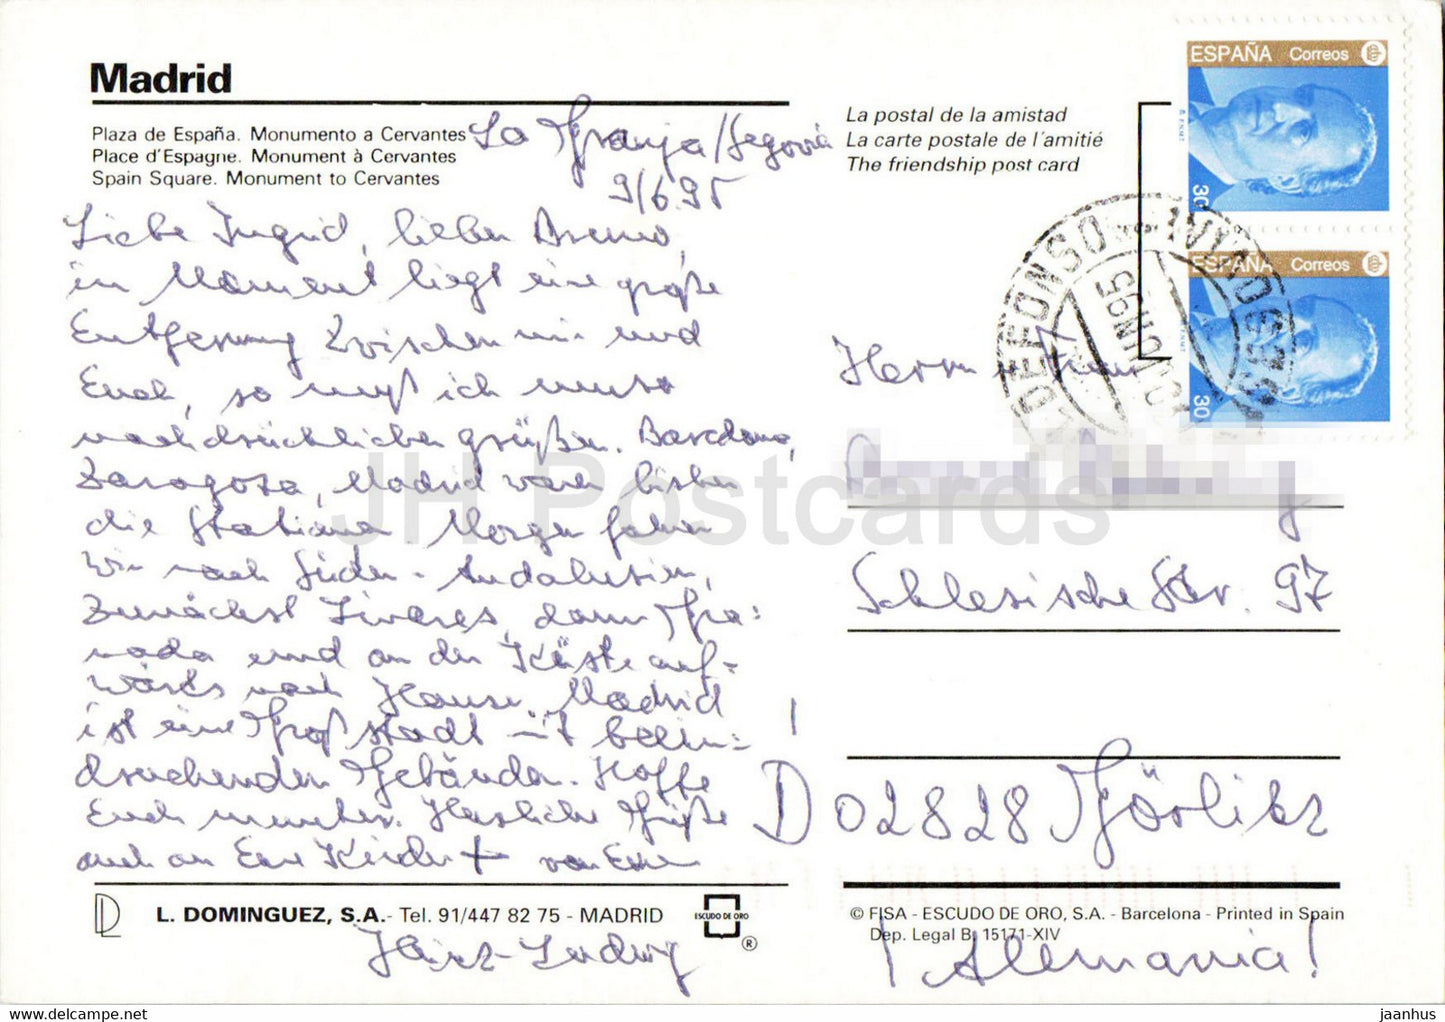 Madrid
Plaza de España. Monumento a Cervantes
Place d'Espagne. Monument à Cervantes
Spain Square. Monument to Cervantes
La Granja/Segovia
9/6.95
Liebe Ingrid, lieber Bruno,
im Moment liegt eine große
Entfernung zwischen mir und
Euch, so muß ich umso
nachdrücklicher grüßen. Barcelona,
Zaragoza, Madrid waren bisher
die Stationen. Morgen fahren
wir nach Süden - Andalusien,
zunächst Linares, dann Gra=
nada und an der Küste auf=
wärts nach Hause. Madrid
ist eine Großstadt mit beein=
druckenden Gebäuden. Hoffe
Euch munter. Herzliche Grüße
auch an Eure Kinder + von Eurem
Heinz-Ludwig
L. DOMINGUEZ, S.A.- Tel. 91/447 82 75 - MADRID
ESCUDO DE ORO
®
La postal de la amistad
La carte postale de l'amitié
The friendship post card
ESPAÑA Correos
30
ESPAÑA Correos
30
ILDEFONSO
JUN 95
SEGOVIA
Herrn
Schlesische Str. 97
! D 02828 Görlitz
© FISA - ESCUDO DE ORO, S.A. - Barcelona - Printed in Spain
Dep. Legal B. 15171-XIV
¡Alemania!
JH Postcards
www.hipcomic.com
jaanhus